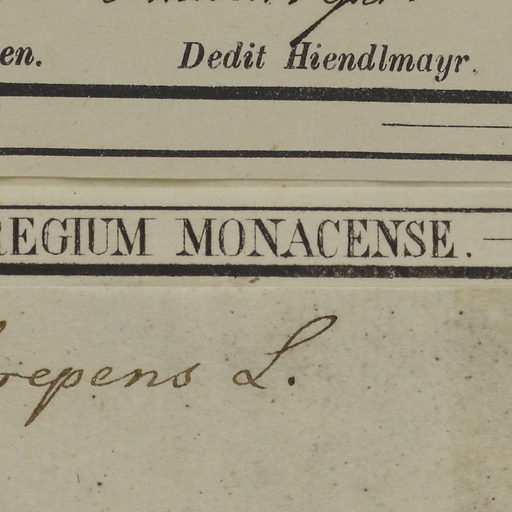 en. Dedit Hiendlmayr.
REGIUM MONACENSE.
repens L.